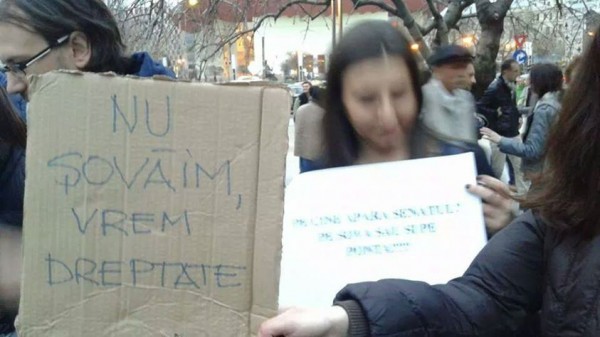 NU
ŞOVĂIM,
VREM
DREPTATE
PE CINE APARA SENATUL?
PE SOVA SAU SI PE
PONTA!!!!